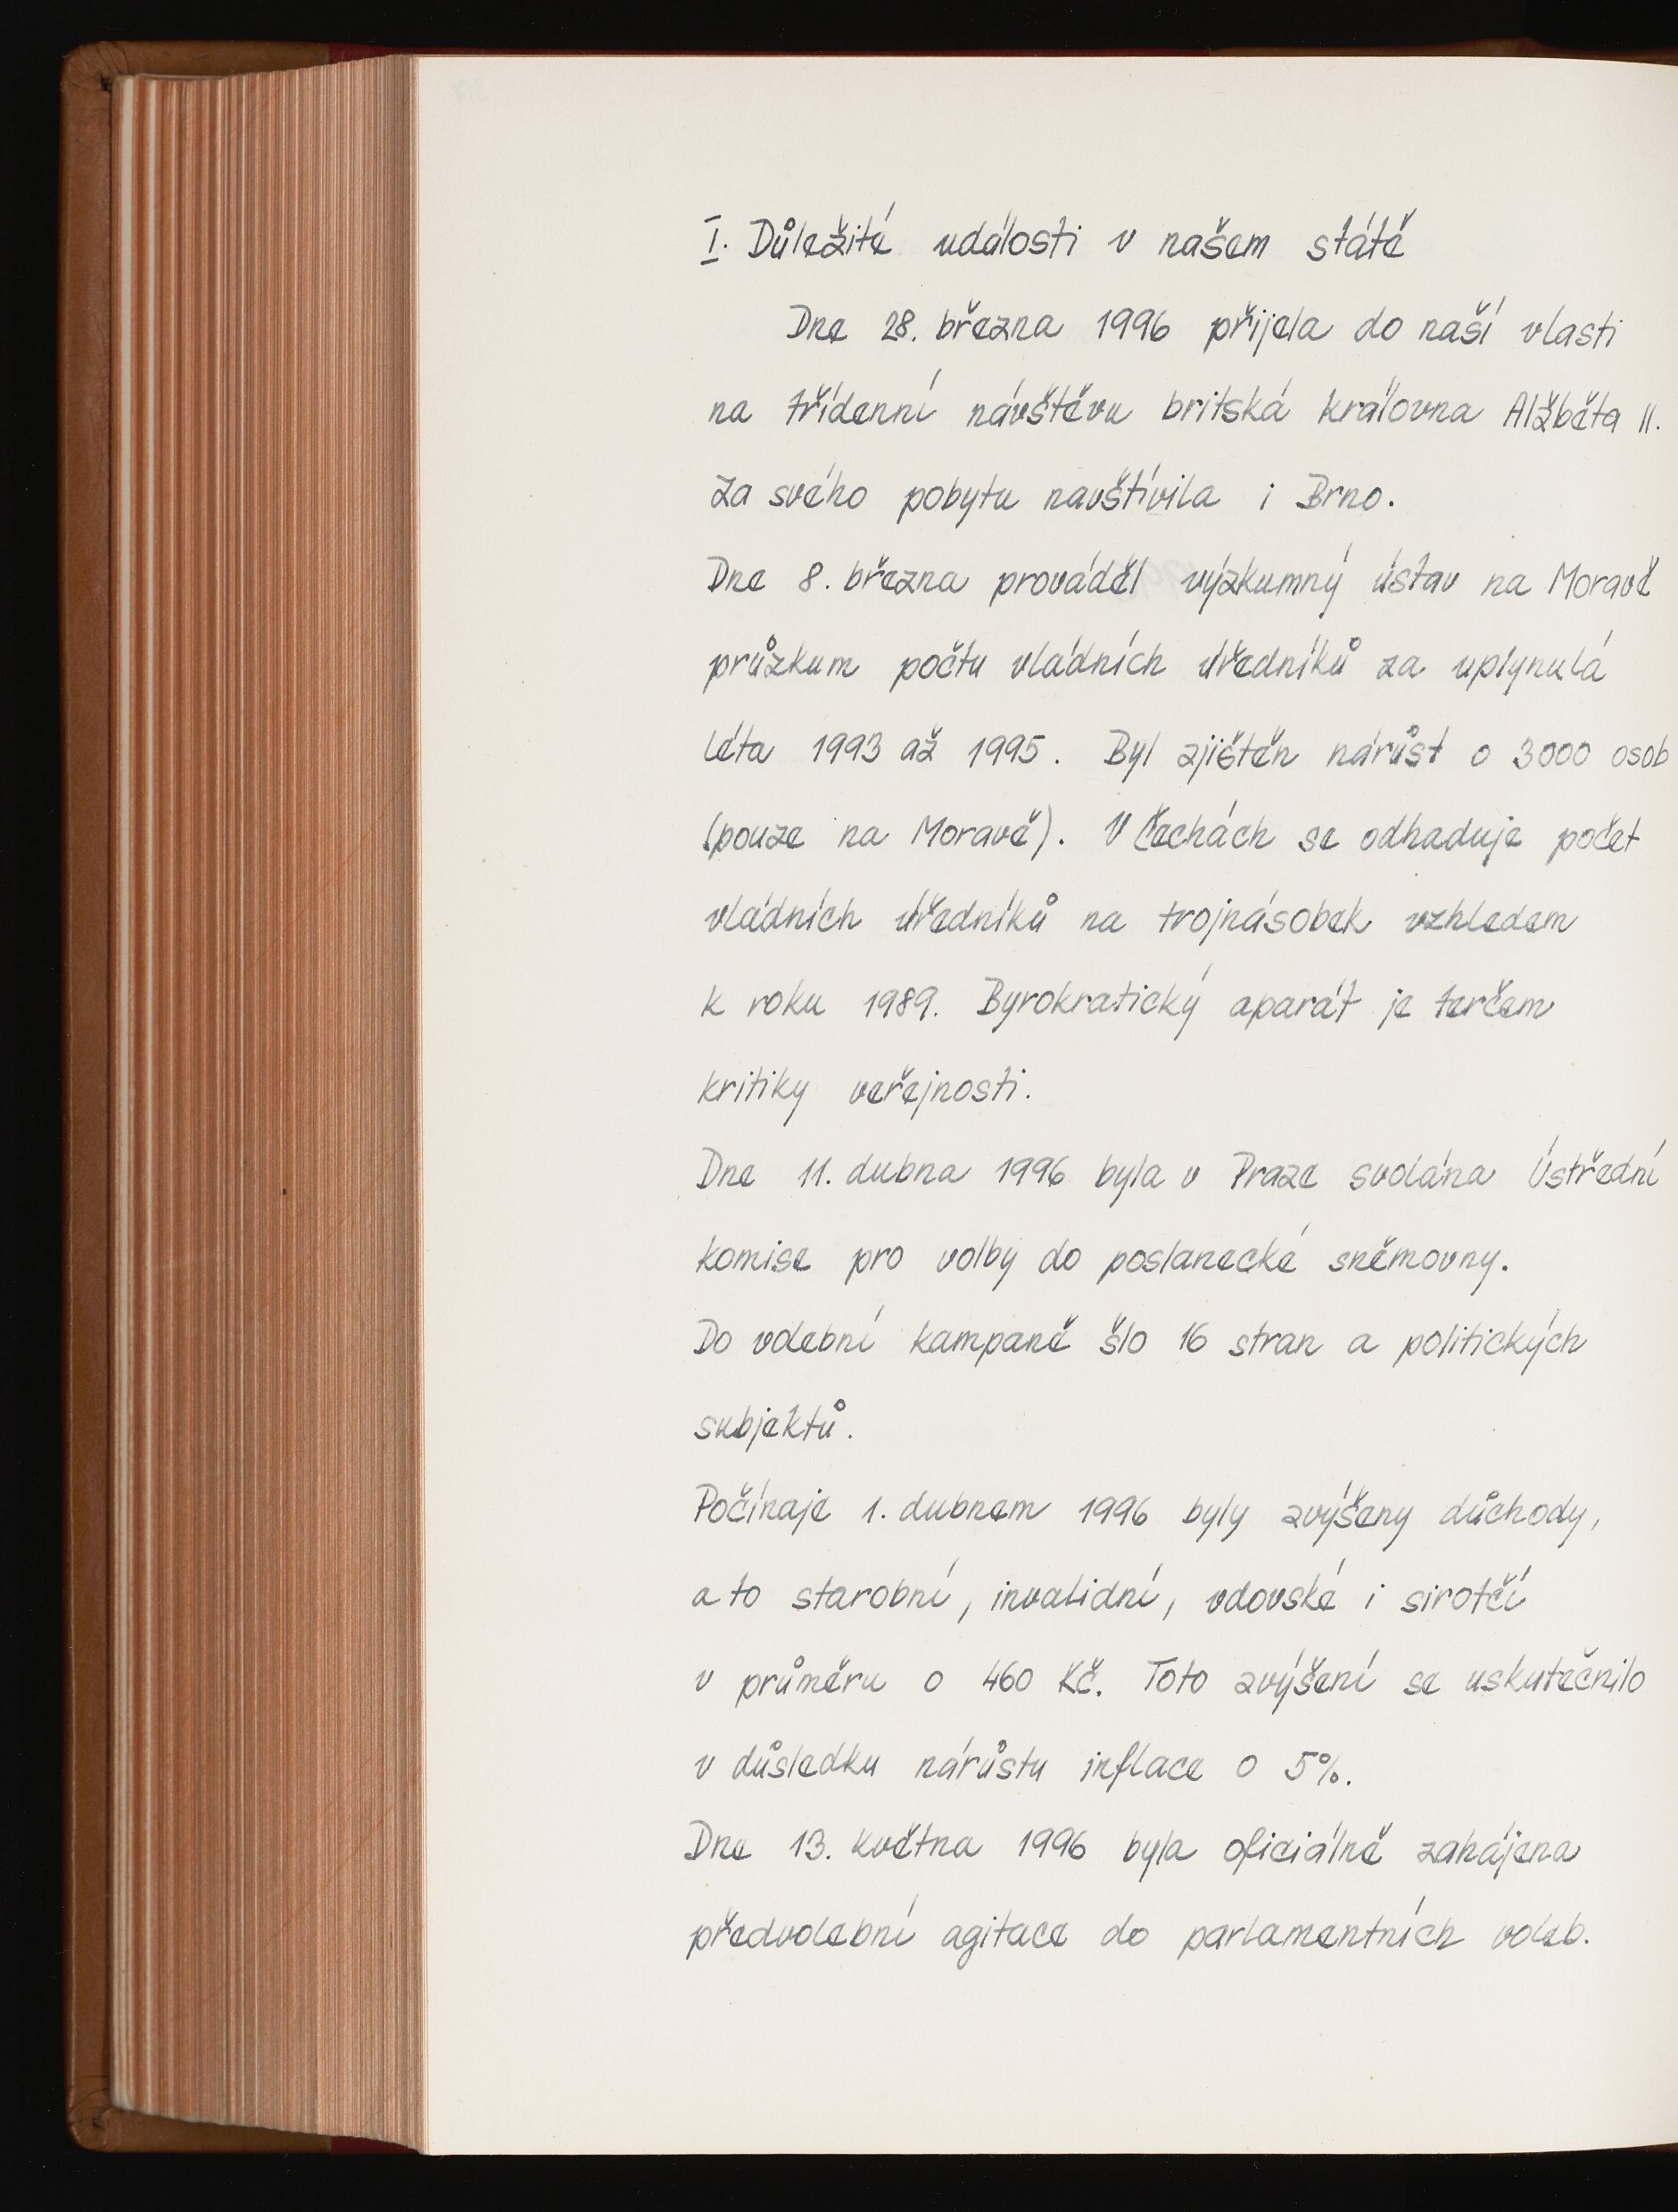 I. Důležité události v našem státě
Dne 28. března 1996 přijela do naší vlasti
na třídenní návštěvu britská královna Alžběta II.
Za svého pobytu navštívila i Brno.
Dne 8. března prováděl výzkumný ústav na Moravě
průzkum počtu vládních úředníků za uplynulá
léta 1993 až 1995. Byl zjištěn nárůst o 3000 osob
(pouze na Moravě). V Čechách se odhaduje počet
vládních úředníků na trojnásobek vzhledem
k roku 1989. Byrokratický aparát je terčem
kritiky veřejnosti.
Dne 11. dubna 1996 byla v Praze svolána Ústřední
komise pro volby do poslanecké sněmovny.
Do volební kampaně šlo 16 stran a politických
subjektů.
Počínaje 1. dubnem 1996 byly zvýšeny důchody,
a to starobní, invalidní, vdovské i sirotčí
v průměru o 460 Kč. Toto zvýšení se uskutečnilo
v důsledku nárůstu inflace o 5%.
Dne 13. května 1996 byla oficiálně zahájena
předvolební agitace do parlamentních voleb.